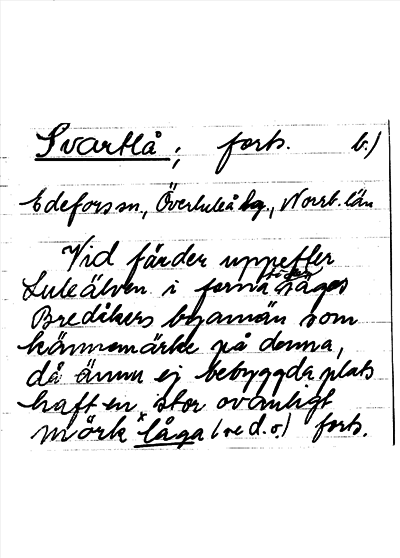 Svartlå; forts. b.)
Edefors sn, Överluleå tg., Norrb. län
Vid färder uppefter
Luleälven i forna tider säges
Bredåkers byamän som
kännemärke på denna,
då ännu ej bebyggda, plats
haft en stor ovanligt
mörk x låga (se d. o.) forts.